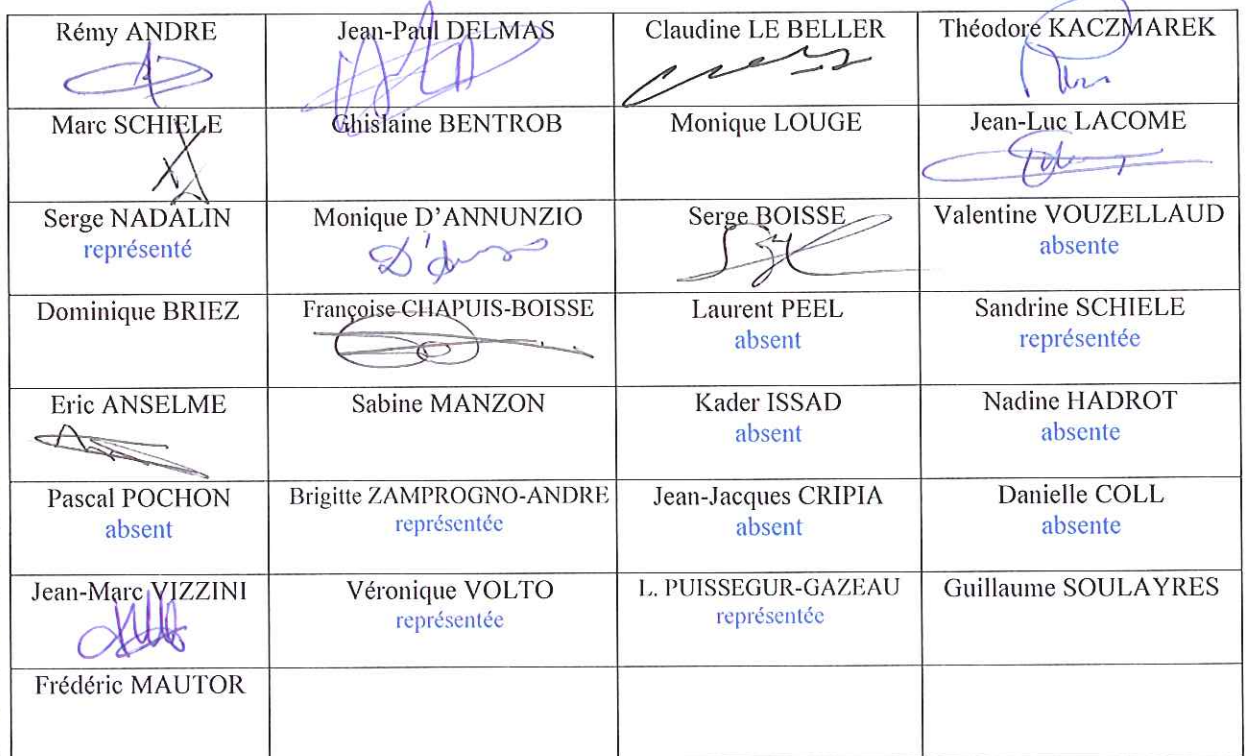 Rémy ANDRE
Jean-Paul DELMAS
Claudine LE BELLER
Théodore KACZMAREK
Marc SCHIELE
Ghislaine BENTROB
Monique LOUGE
Jean-Luc LACOME
Serge NADALIN
représenté
Monique D'ANNUNZIO
Serge BOISSE
Valentine VOUZELLAUD
absente
Dominique BRIEZ
Françoise CHAPUIS-BOISSE
Laurent PEEL
absent
Sandrine SCHIELE
représentée
Eric ANSELME
Sabine MANZON
Kader ISSAD
absent
Nadine HADROT
absente
Pascal POCHON
absent
Brigitte ZAMPROGNO-ANDRE
représentée
Jean-Jacques CRIPIA
absent
Danielle COLL
absente
Jean-Marc VIZZINI
Véronique VOLTO
représentée
L. PUISSEGUR-GAZEAU
représentée
Guillaume SOULAYRES
Frédéric MAUTOR